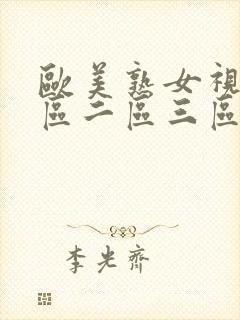 歐美熟女視
區二區三區
李光齊